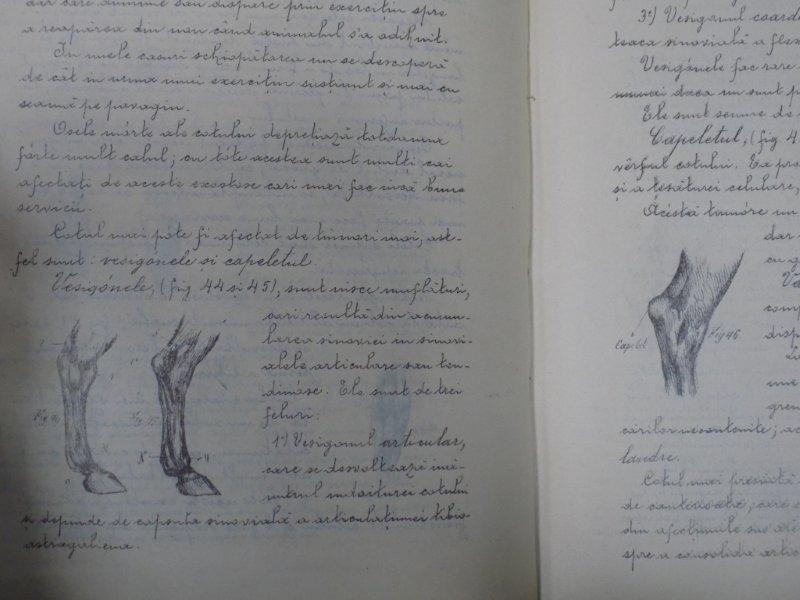 dar care diminue sau dispare prin exercițiu spre
a reapărea din nou când animalul s'a odihnit.
In unele casuri schiopătarea nu se descoperă
de cât in urma unui exercițiu susținut și mai cu
seamă pe pavagiu.
Osele mórte ale cotului depretiază totdauna
fórte mult calul; cu tóte acestea sunt mulți cai
afectați de aceste exostose cari unei fac insă bune
servicii.
Cotul mai póte fi afectat de tumori moi, ast-
fel sunt: vesigónele și capeletul.
Vesigónele, (fig 44 și 45), sunt nisce umflături,
cari resultă din acumu-
larea sinoviei in sinovi-
alele articulare sau ten-
dinóse. Ele sunt de trei
feluri:
1º) Vesigonul articular,
care se desvoltează ină-
untrul indoiturei cotului
și depinde de capsula sinovială a articulațiunei tibio-
astragaliena.
Fig 44
Fig 45
3º) Vesigonul coard
teaca sinovială a flex
Vesigónele fac rare
daca nu sunt p
Ele sunt semne de
Capeletul, (fig 4
vêrful cotului. Ea pro
și a țesăturei celulare,
Acéstă tumóre un
dar
cu g
Ve
comp
disp
Capelet
Fig 46
une
gren
cărilor necontenite; ac
lavdre.
Cotul mai presintă
de cauterisație, care
din afecțiunile sus aré
spre a consolida artic